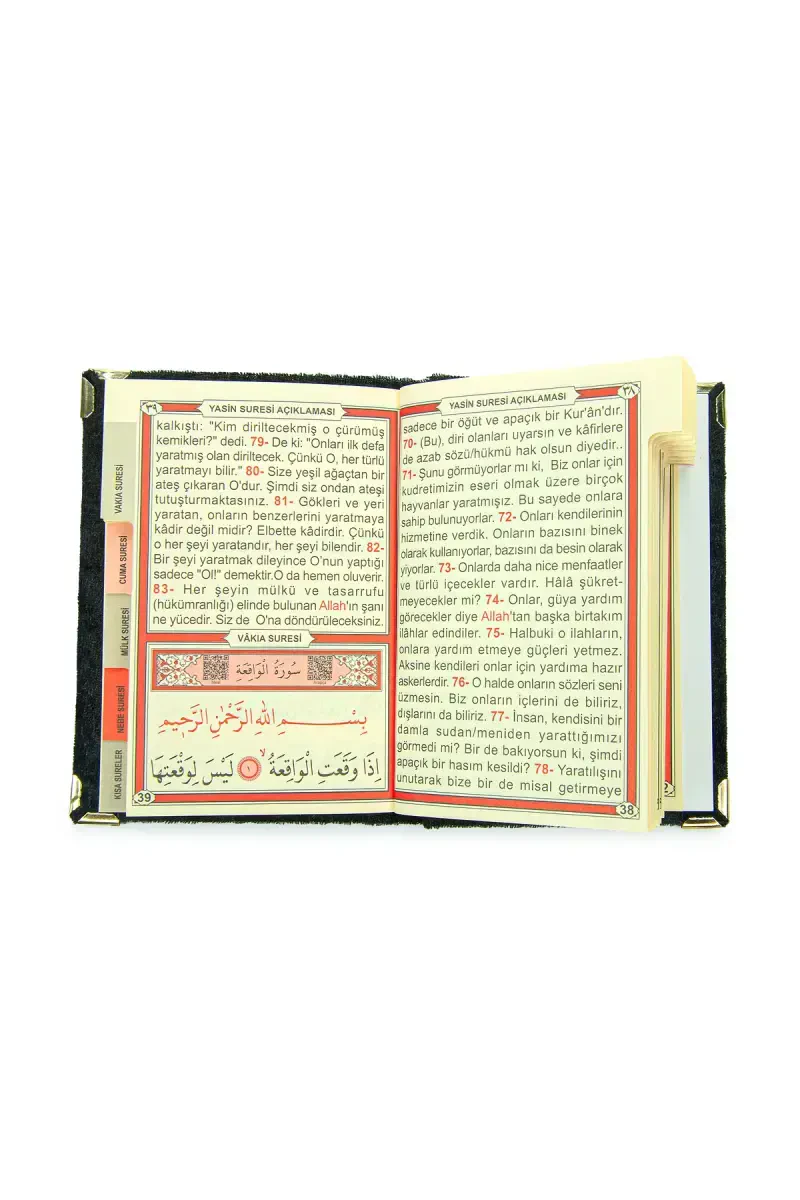 ٣٨
YASİN SURESİ AÇIKLAMASI
sadece bir öğüt ve apaçık bir Kur'ân'dır.
70- (Bu), diri olanları uyarsın ve kâfirlere
de azab sözü/hükmü hak olsun diyedir..
71- Şunu görmüyorlar mı ki, Biz onlar için
kudretimizin eseri olmak üzere birçok
hayvanlar yaratmışız. Bu sayede onlara
sahip bulunuyorlar. 72- Onları kendilerinin
hizmetine verdik. Onların bazısını binek
olarak kullanıyorlar, bazısını da besin olarak
yiyorlar. 73- Onlarda daha nice menfaatler
ve türlü içecekler vardır. Hâlâ şükret-
meyecekler mi? 74- Onlar, güya yardım
görecekler diye Allah'tan başka birtakım
ilâhlar edindiler. 75- Halbuki o ilahların,
onlara yardım etmeye güçleri yetmez.
Aksine kendileri onlar için yardıma hazır
askerlerdir. 76- O halde onların sözleri seni
üzmesin. Biz onların içlerini de biliriz,
dışlarını da biliriz. 77- İnsan, kendisini bir
damla sudan/meniden yarattığımızı
görmedi mi? Bir de bakıyorsun ki, şimdi
apaçık bir hasım kesildi? 78- Yaratılışını
unutarak bize bir de misal getirmeye
38
٣٩
YASİN SURESİ AÇIKLAMASI
kalkıştı: "Kim diriltecekmiş o çürümüş
kemikleri?" dedi. 79- De ki: "Onları ilk defa
yaratmış olan diriltecek. Çünkü O, her türlü
yaratmayı bilir." 80- Size yeşil ağaçtan bir
ateş çıkaran O'dur. Şimdi siz ondan ateşi
tutuşturmaktasınız. 81- Gökleri ve yeri
yaratan, onların benzerlerini yaratmaya
kâdir değil midir? Elbette kâdirdir. Çünkü
o her şeyi yaratandır, her şeyi bilendir. 82-
Bir şeyi yaratmak dileyince O'nun yaptığı
sadece "Ol!" demektir.O da hemen oluverir.
83- Her şeyin mülkü ve tasarrufu
(hükümranlığı) elinde bulunan Allah'ın şanı
ne yücedir. Siz de O'na döndürüleceksiniz.
VÂKIA SURESİ
سُورَةُ الْوَاقِعَةِ
بِسْمِ اللهِ الرَّحْمٰنِ الرَّحِيمِ
اِذَا وَقَعَتِ الْوَاقِعَةُ ۙ ١ لَيْسَ لِوَقْعَتِهَا
39
VAKIA SURESİ
CUMA SURESİ
MÜLK SURESİ
NEBE SURESİ
KISA SURELER